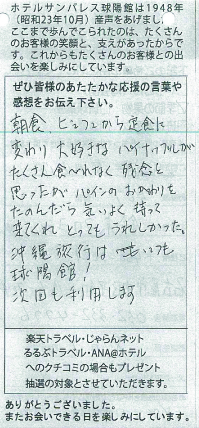 ホテルサンパレス球陽館は1948年
(昭和23年10月)産声をあげまし、
ここまで歩んでこられたのは、たくさん
のお客様の笑顔と、支えがあったからで
す。これからもたくさんのお客様との出
会いを楽しみにしています。
ぜひ皆様のあたたかな応援の言葉や
感想をお伝え下さい。
朝食、ビュッフェから定食に
変わり 大好きなパイナップルが
たくさん食べれなく残念と
思ったが パインのおかわりを
たのんだら 気いよく 持って
来てくれ とってもうれしかった。
沖縄旅行は いつも
球陽館!
次回も利用します
楽天トラベル・じゃらんネット
るるぶトラベル・ANA@ホテル
へのクチコミの場合もプレゼント
抽選の対象とさせていただきます。
ありがとうございました。
またお会いできる日を楽しみにしています。